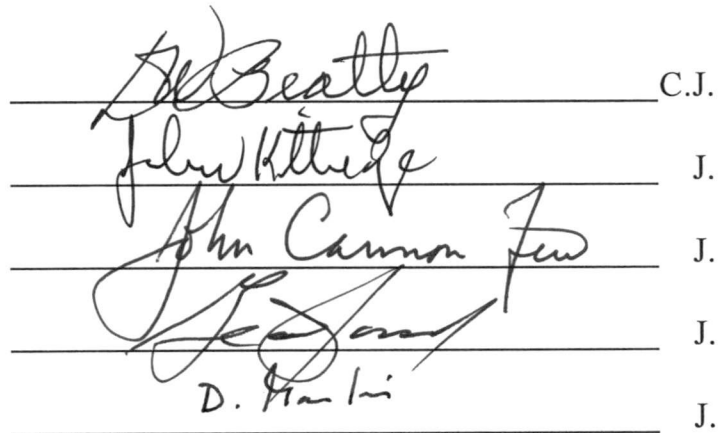 Beatty C.J.
John Kittredge J.
John Cannon Few J.
J.
D. J.